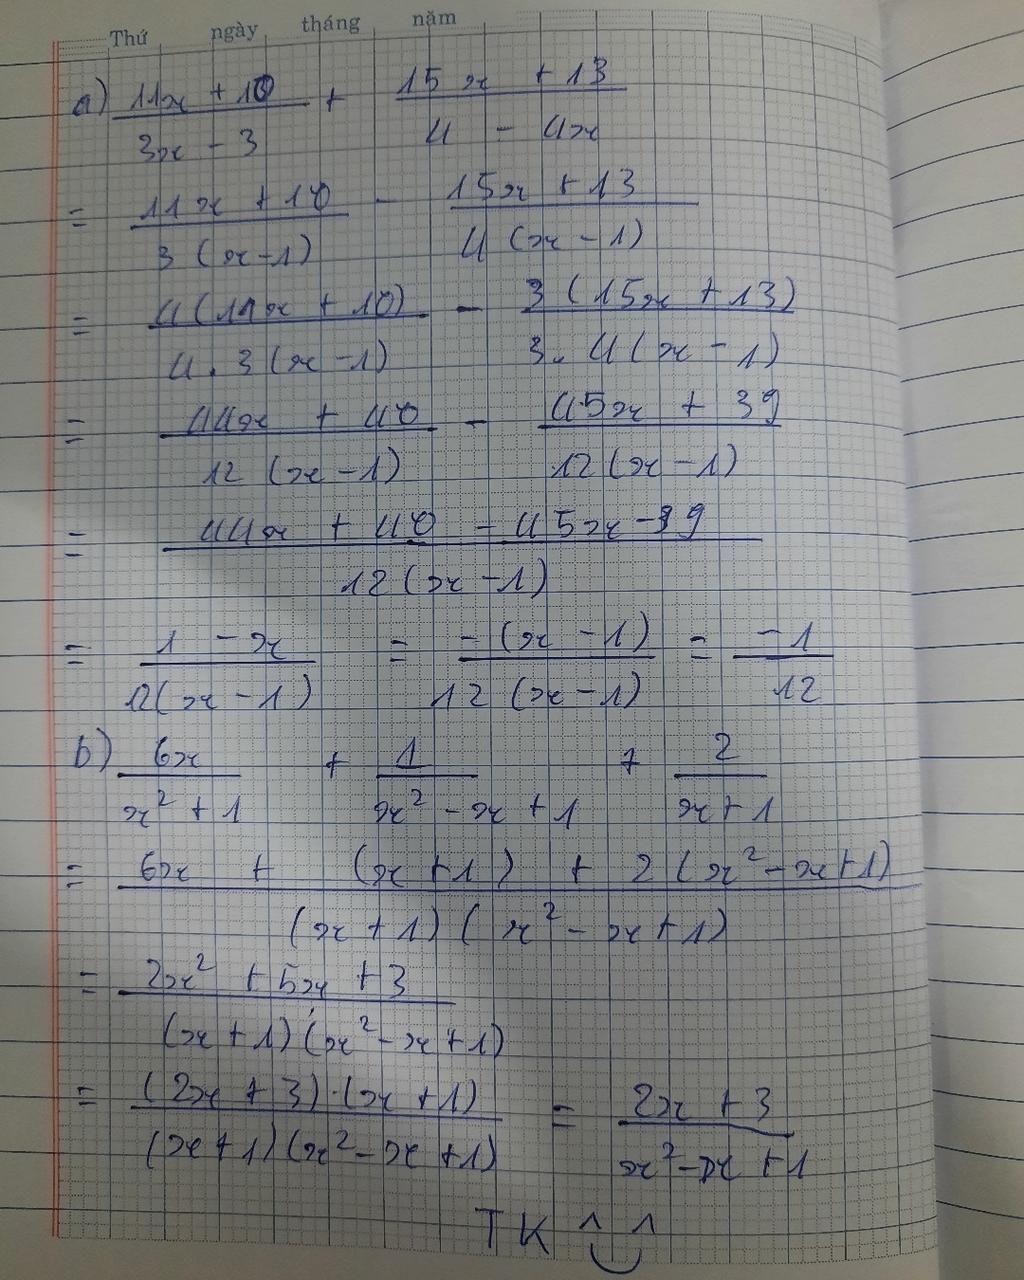 Thứ ngày tháng năm
a) (11x + 10)/(3x - 3) + (15x + 13)/(4 - 4x)
= (11x + 10)/(3(x - 1)) - (15x + 13)/(4(x - 1))
= (4(11x + 10))/(4.3(x - 1)) - (3(15x + 13))/(3.4(x - 1))
= (44x + 40)/(12(x - 1)) - (45x + 39)/(12(x - 1))
= (44x + 40 - 45x - 39)/(12(x - 1))
= (1 - x)/(12(x - 1)) = (-(x - 1))/(12(x - 1)) = (-1)/12
b) 6x/(x² + 1) + 1/(x² - x + 1) + 2/(x + 1)
= (6x + (x + 1) + 2(x² - x + 1))/((x + 1)(x² - x + 1))
= (2x² + 5x + 3)/((x + 1)(x² - x + 1))
= ((2x + 3).(x + 1))/((x + 1)(x² - x + 1)) = (2x + 3)/(x² - x + 1)
TK ^‿^